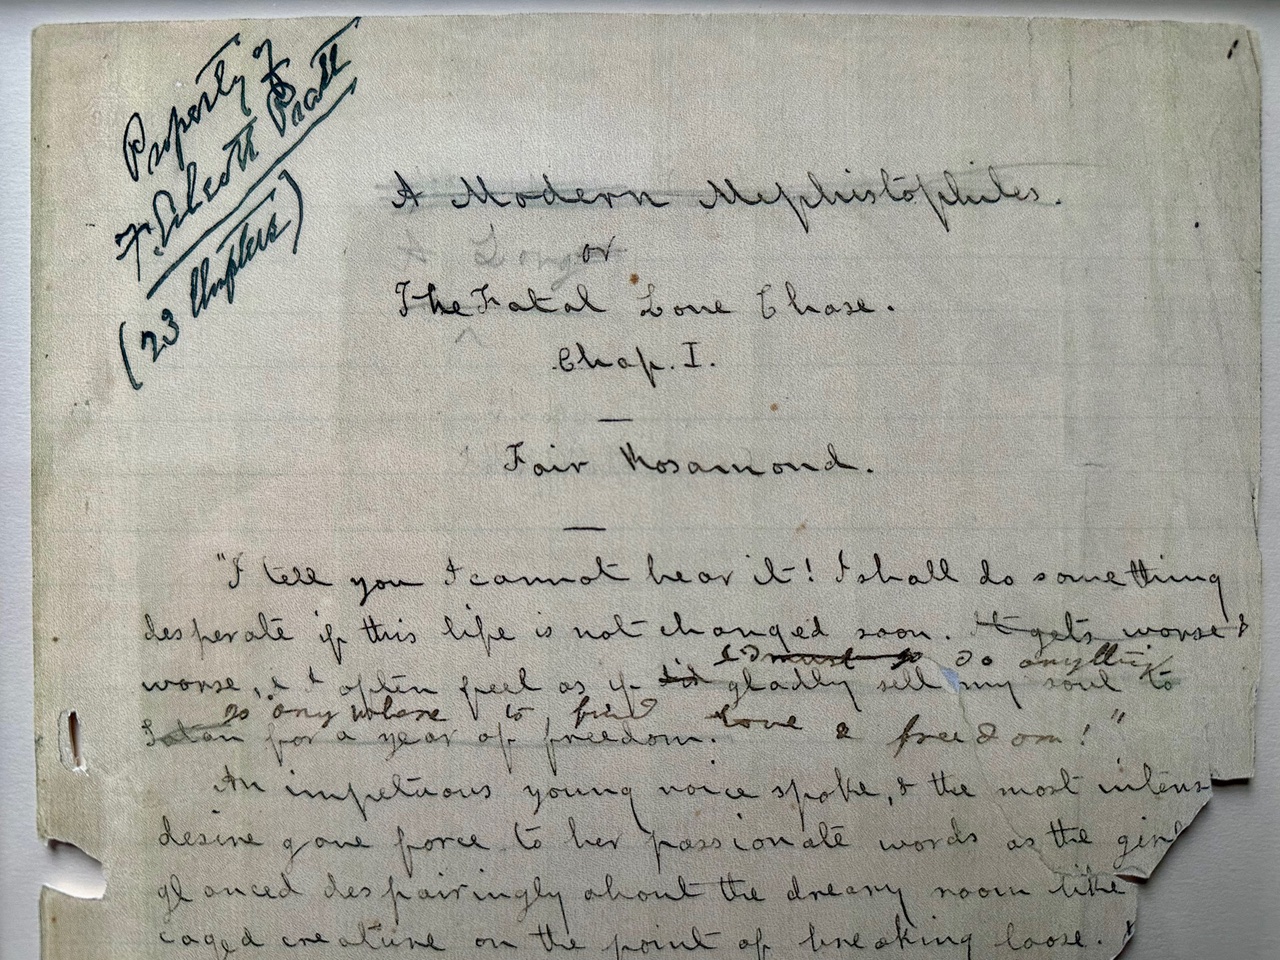 Property of
F. Alcott Pratt
(23 Chapters)
A Modern Mephistophiles.
A Long
or
The Fatal Love Chase.
Chap. I.
Fair Rosamond.
"I tell you I cannot bear it! I shall do something
desperate if this life is not changed soon. It gets worse &
I must go do anything
worse, & I often feel as if I'd gladly sell my soul to
go anywhere to find love & freedom!"
Satan for a year of freedom.
An impetuous young voice spoke, & the most intens
desire gave force to her passionate words as the girl
glanced despairingly about the dreary room like
caged creature on the point of breaking loose.